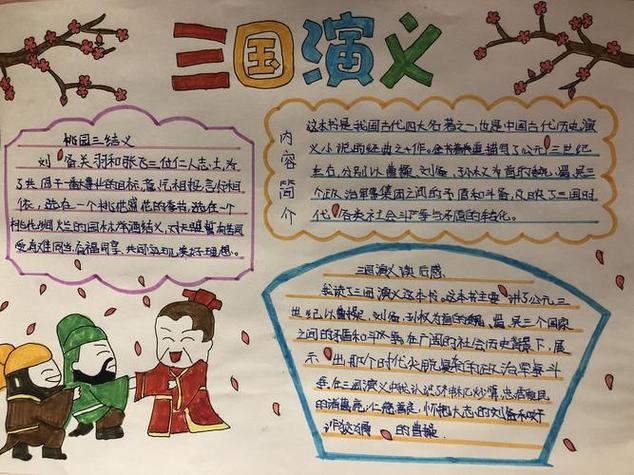 三国演义
桃园三结义
刘备关羽和张飞三位仁人志士,为
了共同干一番事业的目标,意气相投,言行相
依,选在一个桃花盛开的季节,选在一个
桃花绚烂的园林,举酒结义,对天盟誓,有苦同
受,有难同当,有福同享,共同实现美好理想。
内容简介
这本书是我国古代四大名著之一,也是中国古代历史演
义小说的经典之作。全书描写了公元三世纪
左右,分别以曹操、刘备、孙权为首的魏、蜀、吴三
个政治军事集团之间的矛盾和斗争,反映了三国时
代各类社会斗争与矛盾的转化。
三国演义读后感
我读了三国演义这本书。这本书主要讲了公元三
世纪以曹操,刘备,孙权为首的魏,蜀,吴三个国家
之间的矛盾和斗争。在广阔的社会历史背景下,展
示出那个时代尖锐复杂的政治军事斗
在三国演义中我认识了神机妙算,忠
的诸葛亮,仁慈善良,怀抱大志的刘备和
诈狡猾的曹操.